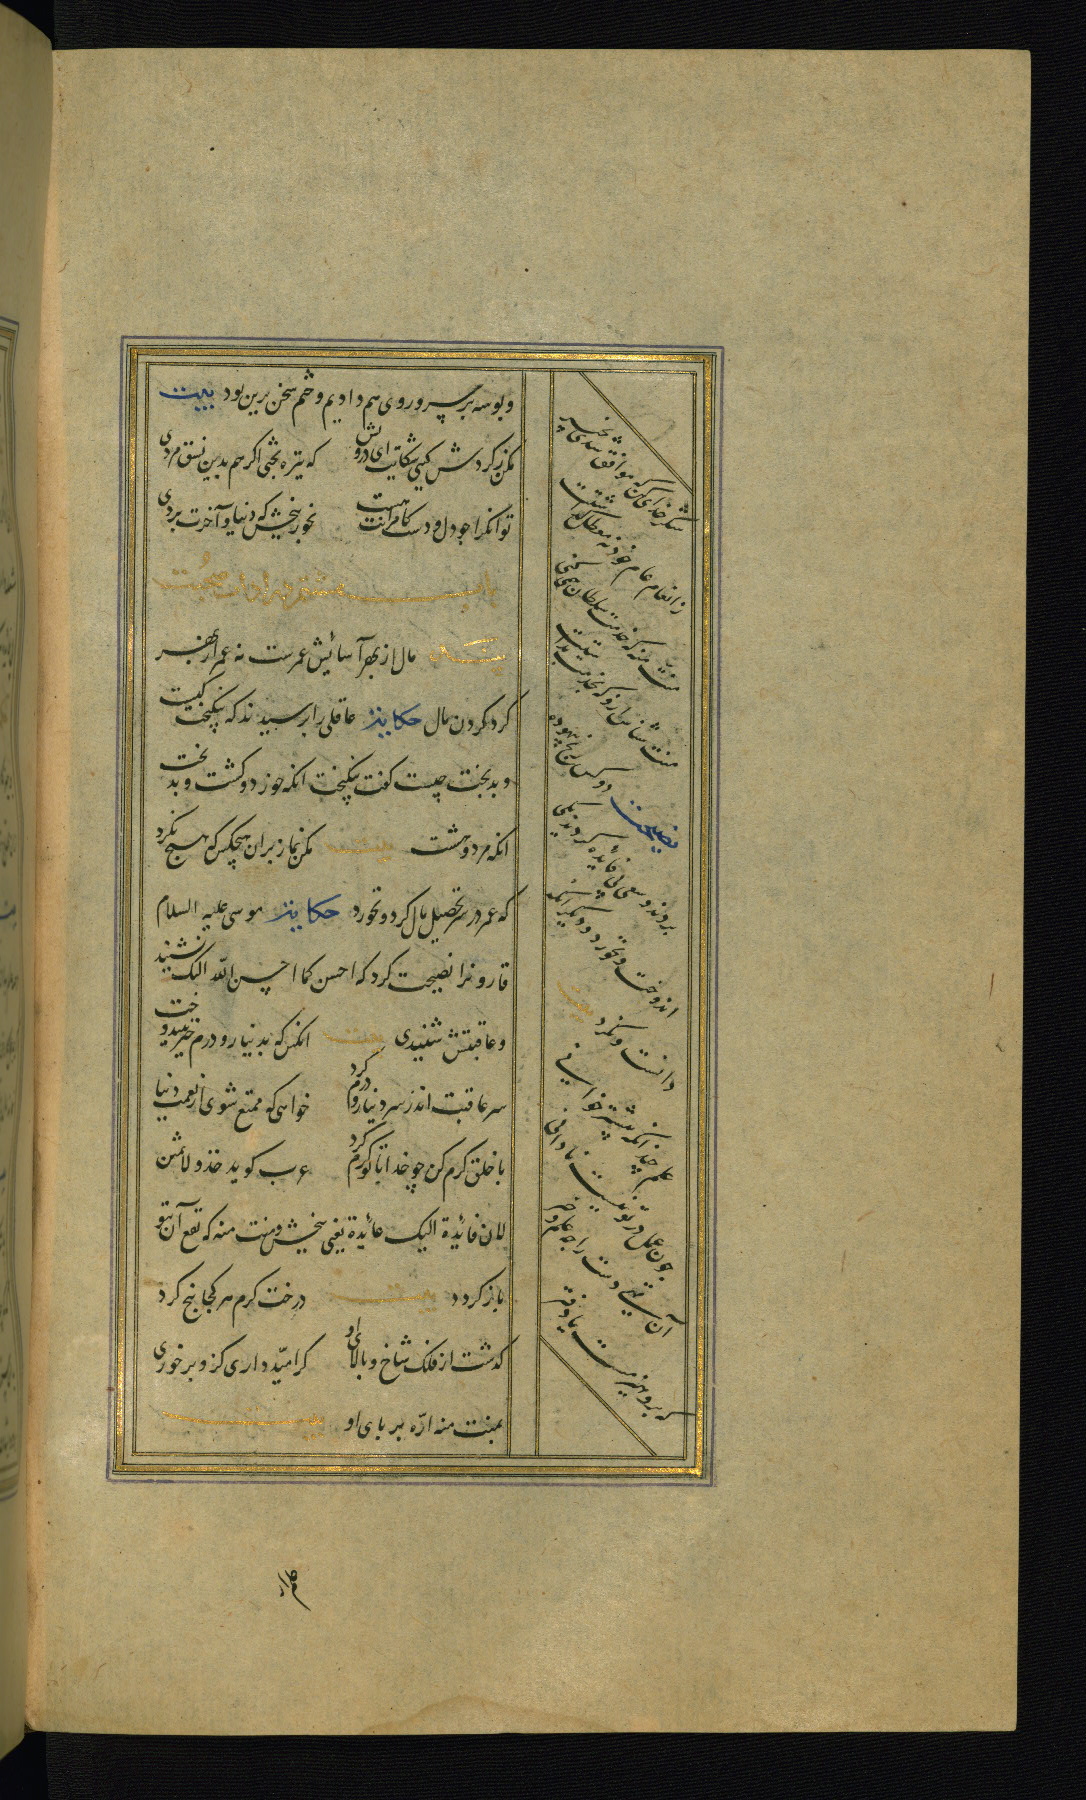 و بوسه بر سر و روی هم دادیم و ختم سخن برین بود بیت
مکن ز گردش گیتی شکایت ای درویش که تیره بختی اگر هم بدین نسق مردی
توانگرا چو دل و دست کامرانت هست بخور ببخش که دنیا و آخرت بردی
باب هشتم در آداب صحبت
پند مال از بهر آسایش عمرست نه عمر از بهر
گرد کردن مال حکایت عاقلی را پرسیدند که نیکبخت کیست
و بدبخت چیست گفت نیکبخت آنکه خورد و کشت و بدبخت
آنکه مرد و هشت بیت مکن نماز بران هیچکس که هیچ نکرد
که عمر در سر تحصیل مال کرد و نخورد حکایت موسی علیه السلام
قارونرا نصیحت کرد که احسن کما احسن الله الیک نشنید
و عاقبتش شنیدی بیت آنکس که بدینار و درم خیر نیندوخت
سر عاقبت اندر سر دینار و درم کرد خواهی که ممتع شوی از نعمت دنیا
با خلق کرم کن چو خدا با تو کرم کرد عرب گوید خذ و لا تمنن
لان فائیدة الیک عائیدة یعنی ببخش و منت منه که نفع آن بتو
باز گردد بیت درخت کرم هر کجا بیخ کرد
گذشت از فلک شاخ و بالای او گر امیدواری کزو بر خوری
بمنت منه ارّه بر پای او بیت
شکر خدای کن که موافق شدی بخیر
ز انعام عام خود نه معطل گذاشتت
منت منه که خدمت سلطان همی کنی
منت شناس ازو که بخدمت بداشتت
نصیحت دو کس رنج بیهوده
بردند و سعی بی فائیده کردند یکی آنکه
اندوخت و نخورد و دیگر آنکه
دانست و نکرد بیت
علم چندانکه بیشتر خوانی
چون عمل در تو نیست نادانی
که برو هیزمست یا دفتر